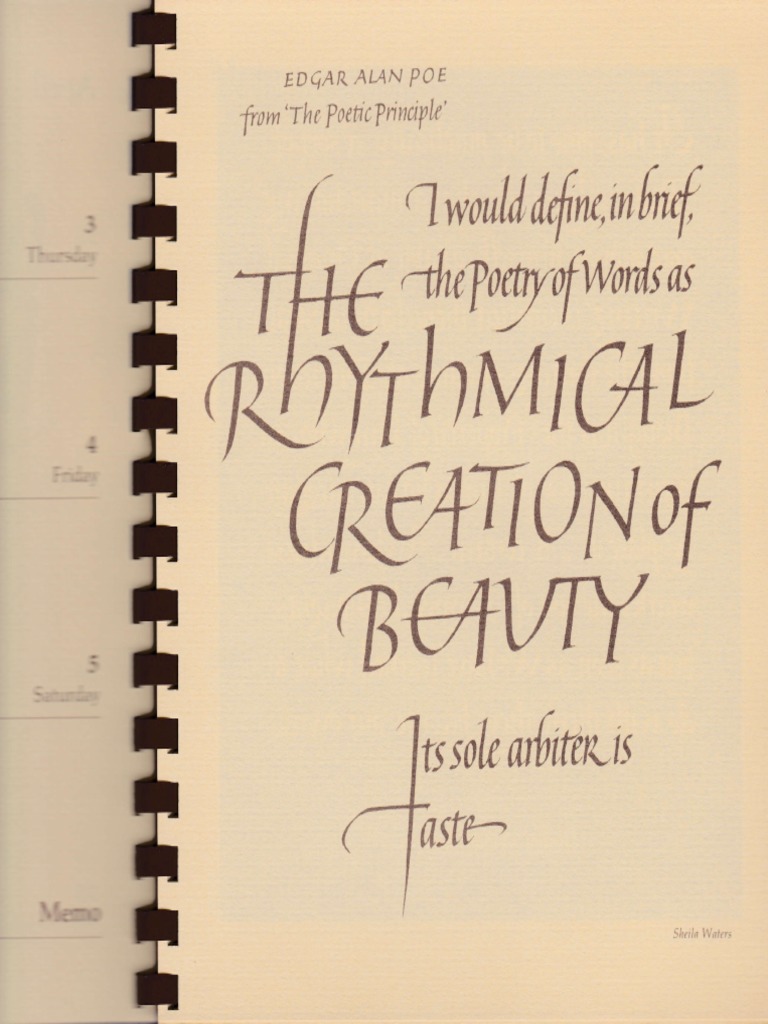 3
Thursday
4
Friday
5
Saturday
Memo
EDGAR ALAN POE
from 'The Poetic Principle'
I would define, in brief,
the Poetry of Words as
THE
RhYThMICAL
CREATION of
BEAUTY
Its sole arbiter is
Taste
Sheila Waters